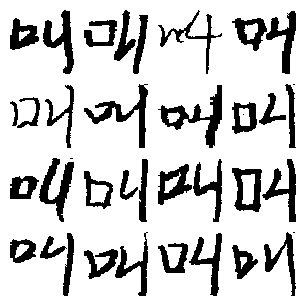 매 매 매 매
매 매 매 매
매 매 매 매
매 매 매 매